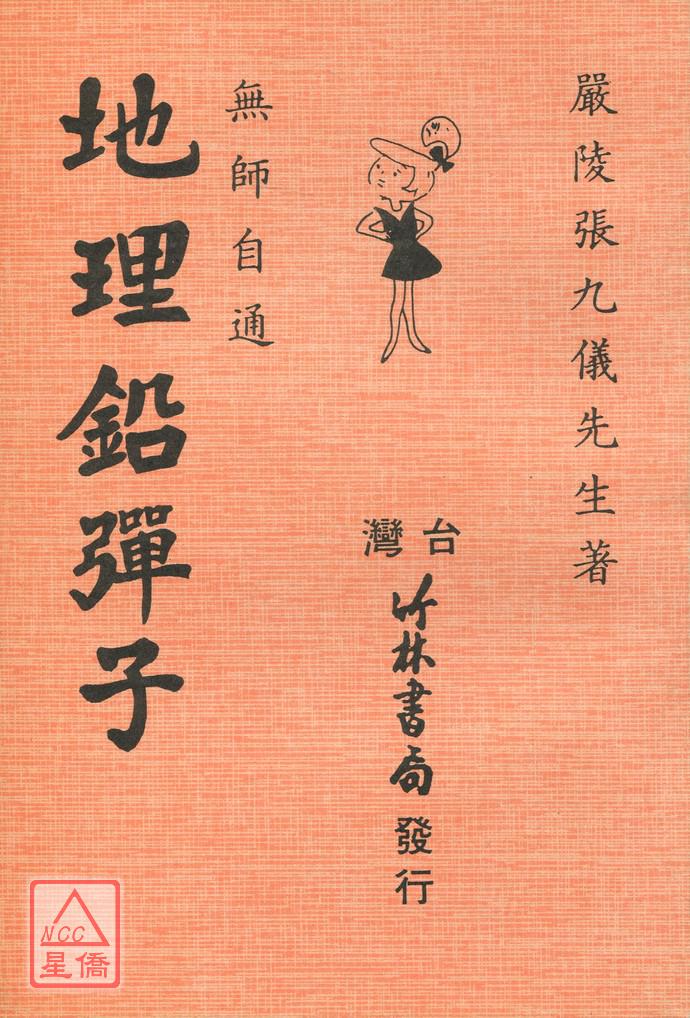 嚴陵張九儀先生著
台灣
竹林書局
發行
無師自通
地理鉛彈子
NCC
星僑